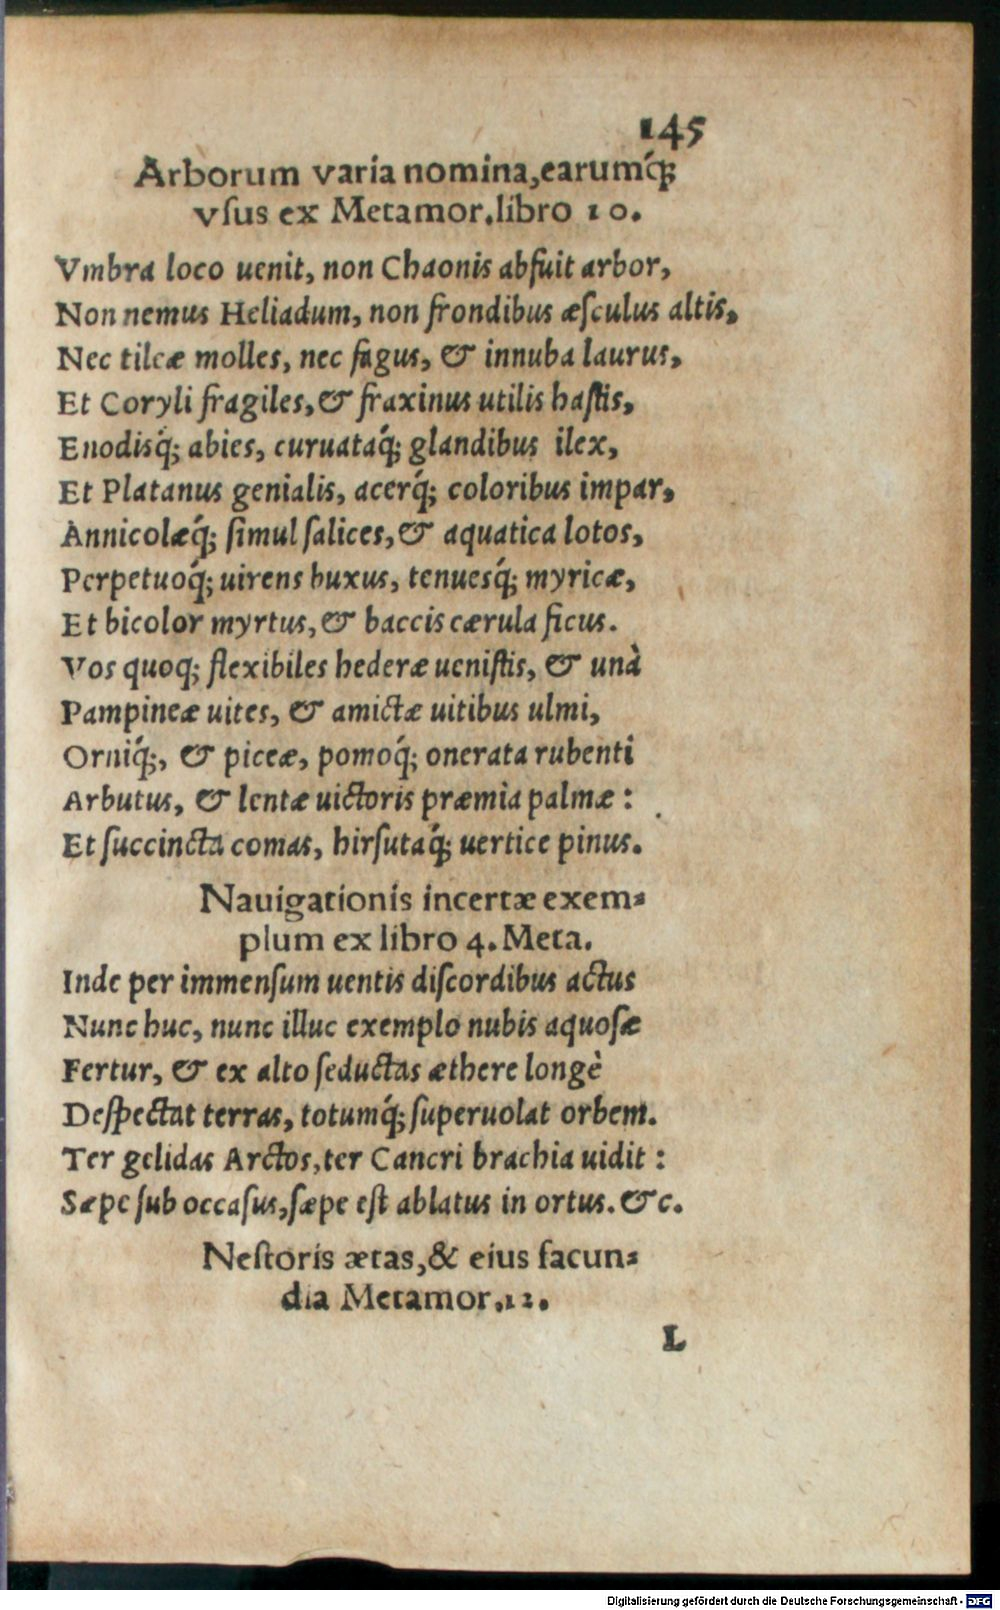 145
Arborum varia nomina, earumq́;
vſus ex Metamor. libro 10.
Vmbra loco uenit, non Chaonis abfuit arbor,
Non nemus Heliadum, non frondibus æſculus altis,
Nec tileæ molles, nec fagus, & innuba laurus,
Et Coryli fragiles, & fraxinus utilis haſtis,
Enodisq́; abies, curuataq́; glandibus ilex,
Et Platanus genialis, acerq́; coloribus impar,
Annicolæq́; ſimul ſalices, & aquatica lotos,
Perpetuoq́; uirens buxus, tenuesq́; myricæ,
Et bicolor myrtus, & baccis cærula ficus.
Vos quoq; flexibiles hederæ ueniſtis, & unà
Pampineæ uites, & amictæ uitibus ulmi,
Orniq́;, & piceæ, pomoq́; onerata rubenti
Arbutus, & lentæ uictoris præmia palmæ:
Et ſuccincta comas, hirſutaq́; uertice pinus.
Nauigationis incertæ exem⸗
plum ex libro 4. Meta.
Inde per immenſum uentis diſcordibus actus
Nunc huc, nunc illuc exemplo nubis aquoſæ
Fertur, & ex alto ſeductas æthere longè
Deſpectat terras, totumq́; ſuperuolat orbem.
Ter gelidas Arctos, ter Cancri brachia uidit:
Sæpe ſub occaſus, ſæpe eſt ablatus in ortus. &c.
Neſtoris ætas, & eius facun⸗
dia Metamor. 12.
L
Digitalisierung gefördert durch die Deutsche Forschungsgemeinschaft - DFG